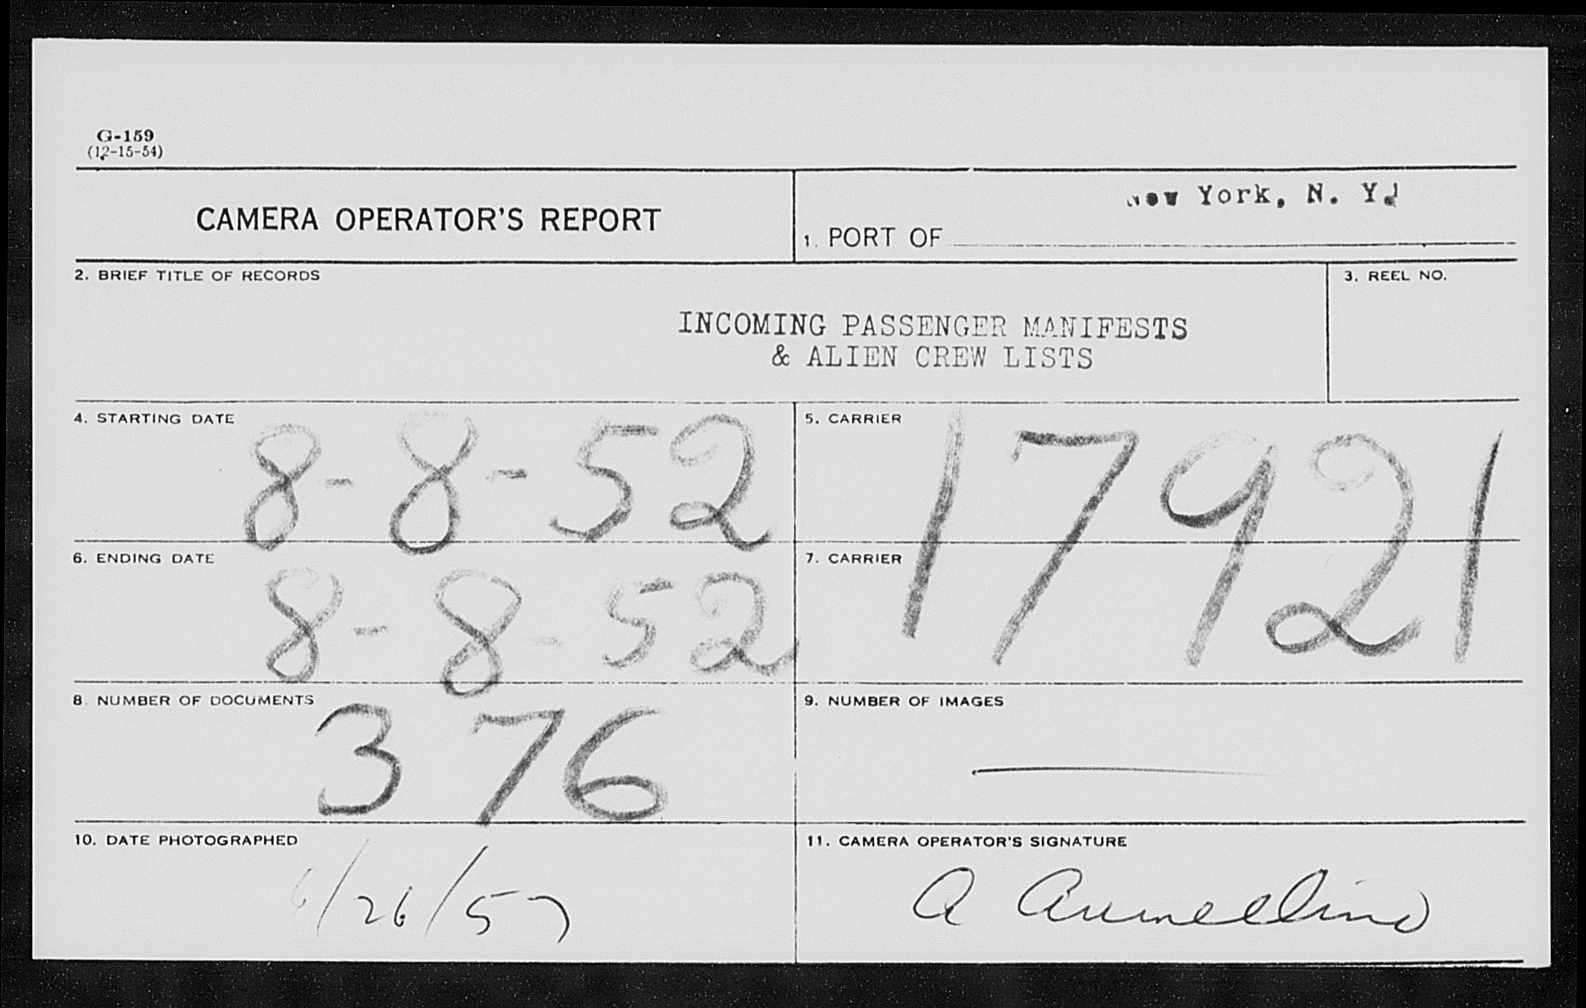 G-159
(12-15-54)
CAMERA OPERATOR'S REPORT
New York, N. Y.
1. PORT OF
2. BRIEF TITLE OF RECORDS
3. REEL NO.
INCOMING PASSENGER MANIFESTS
& ALIEN CREW LISTS
4. STARTING DATE
8-8-52
5. CARRIER
17921
6. ENDING DATE
8-8-52
7. CARRIER
8. NUMBER OF DOCUMENTS
376
9. NUMBER OF IMAGES
10. DATE PHOTOGRAPHED
6/26/57
11. CAMERA OPERATOR'S SIGNATURE
A